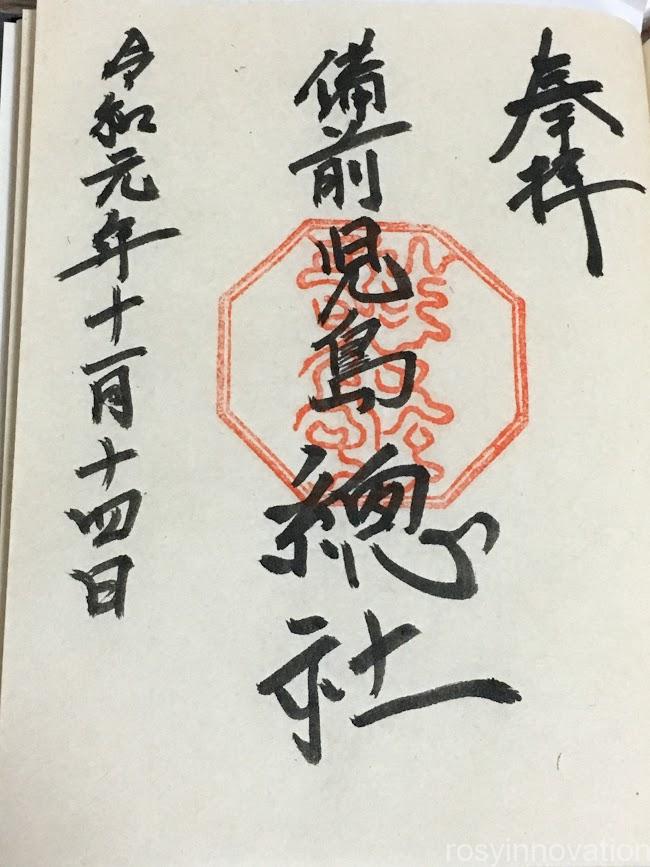 奉拝
備前児島總社
令和元年十一月十四日
rosyinnovation